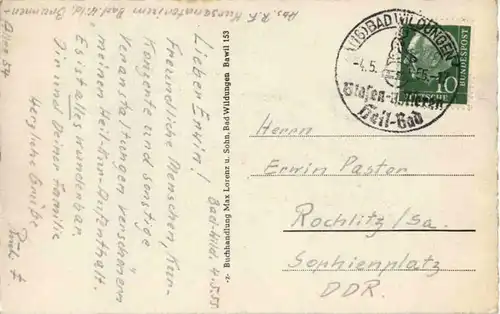 Abs. R. F. Kursanatorium Bad-Wild. Brunnen-
Allee 54
Bad-Wild. 4.5.55
Lieber Erwin!
Freundliche Menschen, Kur-
Konzerte und sonstige
Veranstaltungen verschönern
meinen Heil-Kur-Aufenthalt.
Es ist alles wunderbar.
Dir und Deiner Familie
Herzliche Grüße
Buchhandlung Max Lorenz u. Sohn, Bad Wildungen Bawil 153
(16) BAD WILDUNGEN
-4.5.55
Blasen- u. Nieren
Heil-Bad
DEUTSCHE BUNDESPOST
10
Herrn
Erwin Pastor
Rochlitz/Sa.
Sophienplatz
DDR.